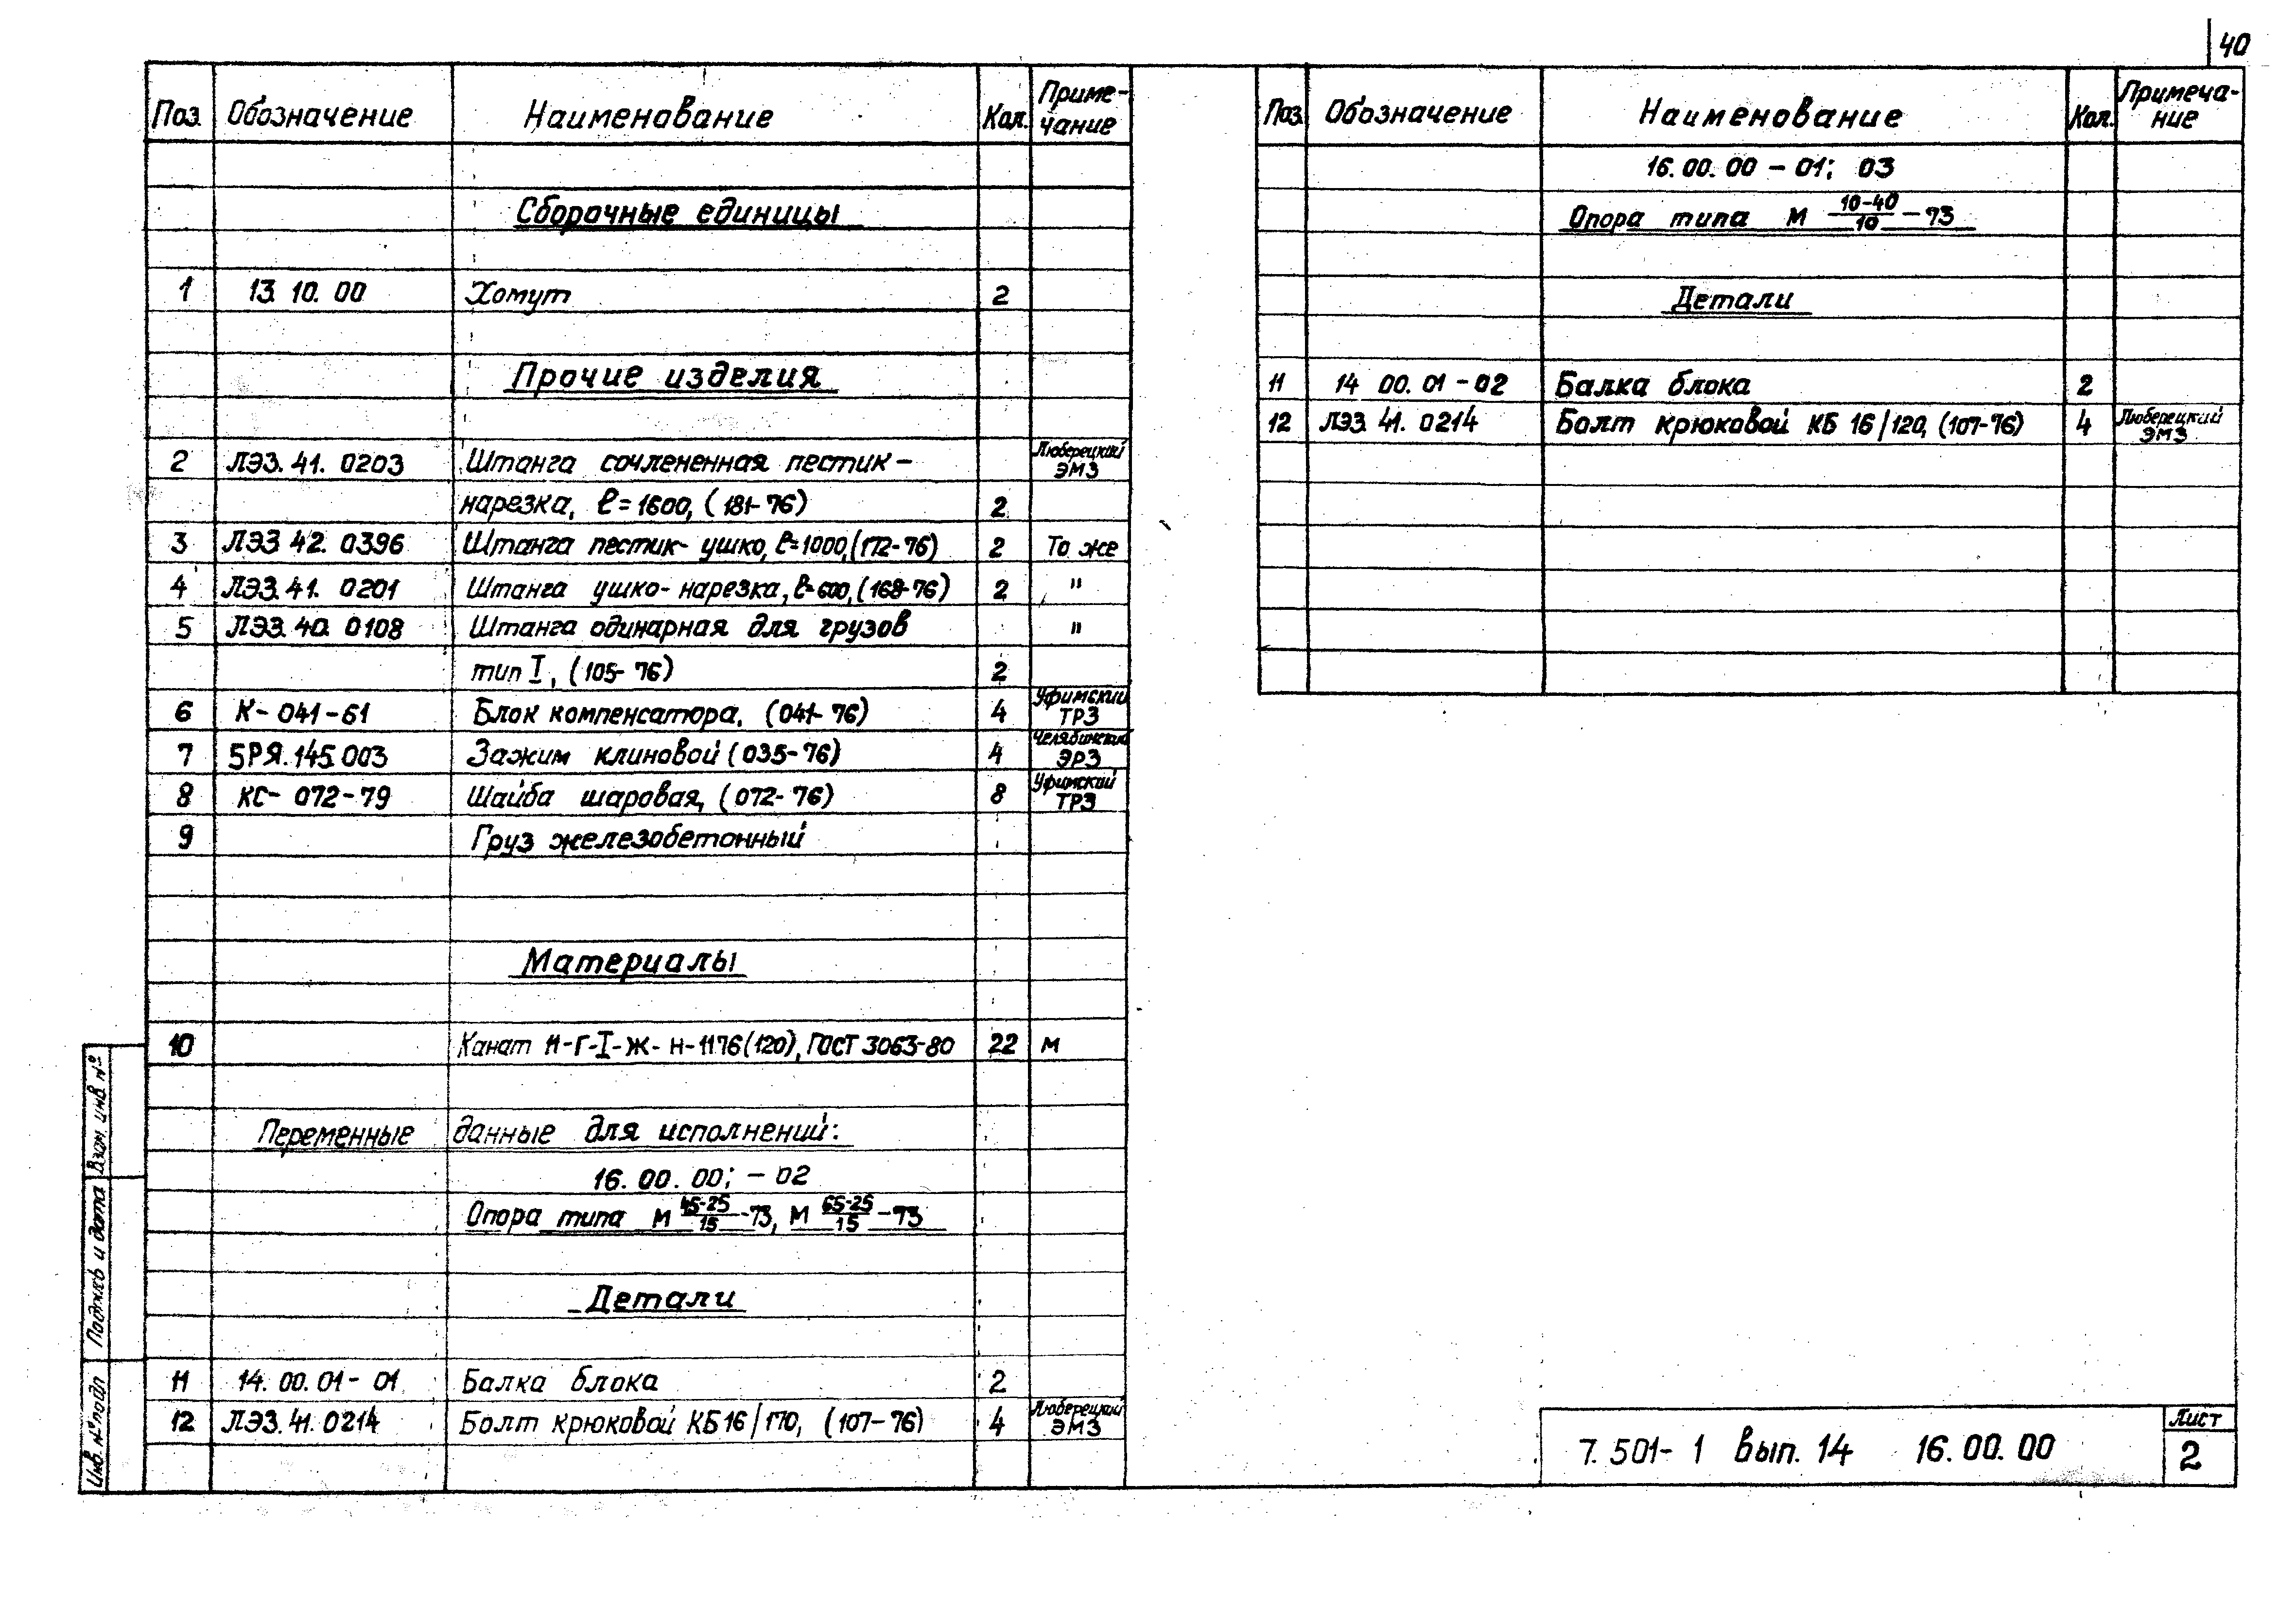 40
Поз. Обозначение Наименование Кол. Приме-чание
Сборочные единицы
1 13.10.00 Хомут 2
Прочие изделия
2 ЛЭЗ.41.0203 Штанга сочлененная пестик- Люберецкий ЭМЗ
нарезка, ℓ=1600, (181-76) 2
3 ЛЭЗ 42.0396 Штанга пестик-ушко, ℓ=1000, (172-76) 2 То же
4 ЛЭЗ.41.0201 Штанга ушко-нарезка, ℓ=600, (168-76) 2 "
5 ЛЭЗ.40.0108 Штанга одинарная для грузов "
тип I, (105-76) 2
6 К-041-61 Блок компенсатора, (041-76) 4 Уфимский ТРЗ
7 5РЯ.145.003 Зажим клиновой (035-76) 4 Челябинский ЭРЗ
8 КС-072-79 Шайба шаровая, (072-76) 8 Уфимский ТРЗ
9 Груз железобетонный
Материалы
10 Канат 11-Г-I-Ж-Н-1176(120), ГОСТ 3063-80 22 м
Переменные данные для исполнений:
16.00.00; -02
Опора типа М 45-25/15-73, М 65-25/15-73
Детали
11 14.00.01-01 Балка блока 2
12 ЛЭЗ.41.0214 Болт крюковой КБ16/170, (107-76) 4 Люберецкий ЭМЗ
Поз. Обозначение Наименование Кол. Примеча-ние
16.00.00-01; 03
Опора типа М 10-40/10-73
Детали
11 14 00.01-02 Балка блока 2
12 ЛЭЗ.41.0214 Болт крюковой КБ 16/120, (107-76) 4 Люберецкий ЭМЗ
Взам. инв №
Подпись и дата
Инв. № подл
7.501-1 Вып. 14 16.00.00
Лист
2